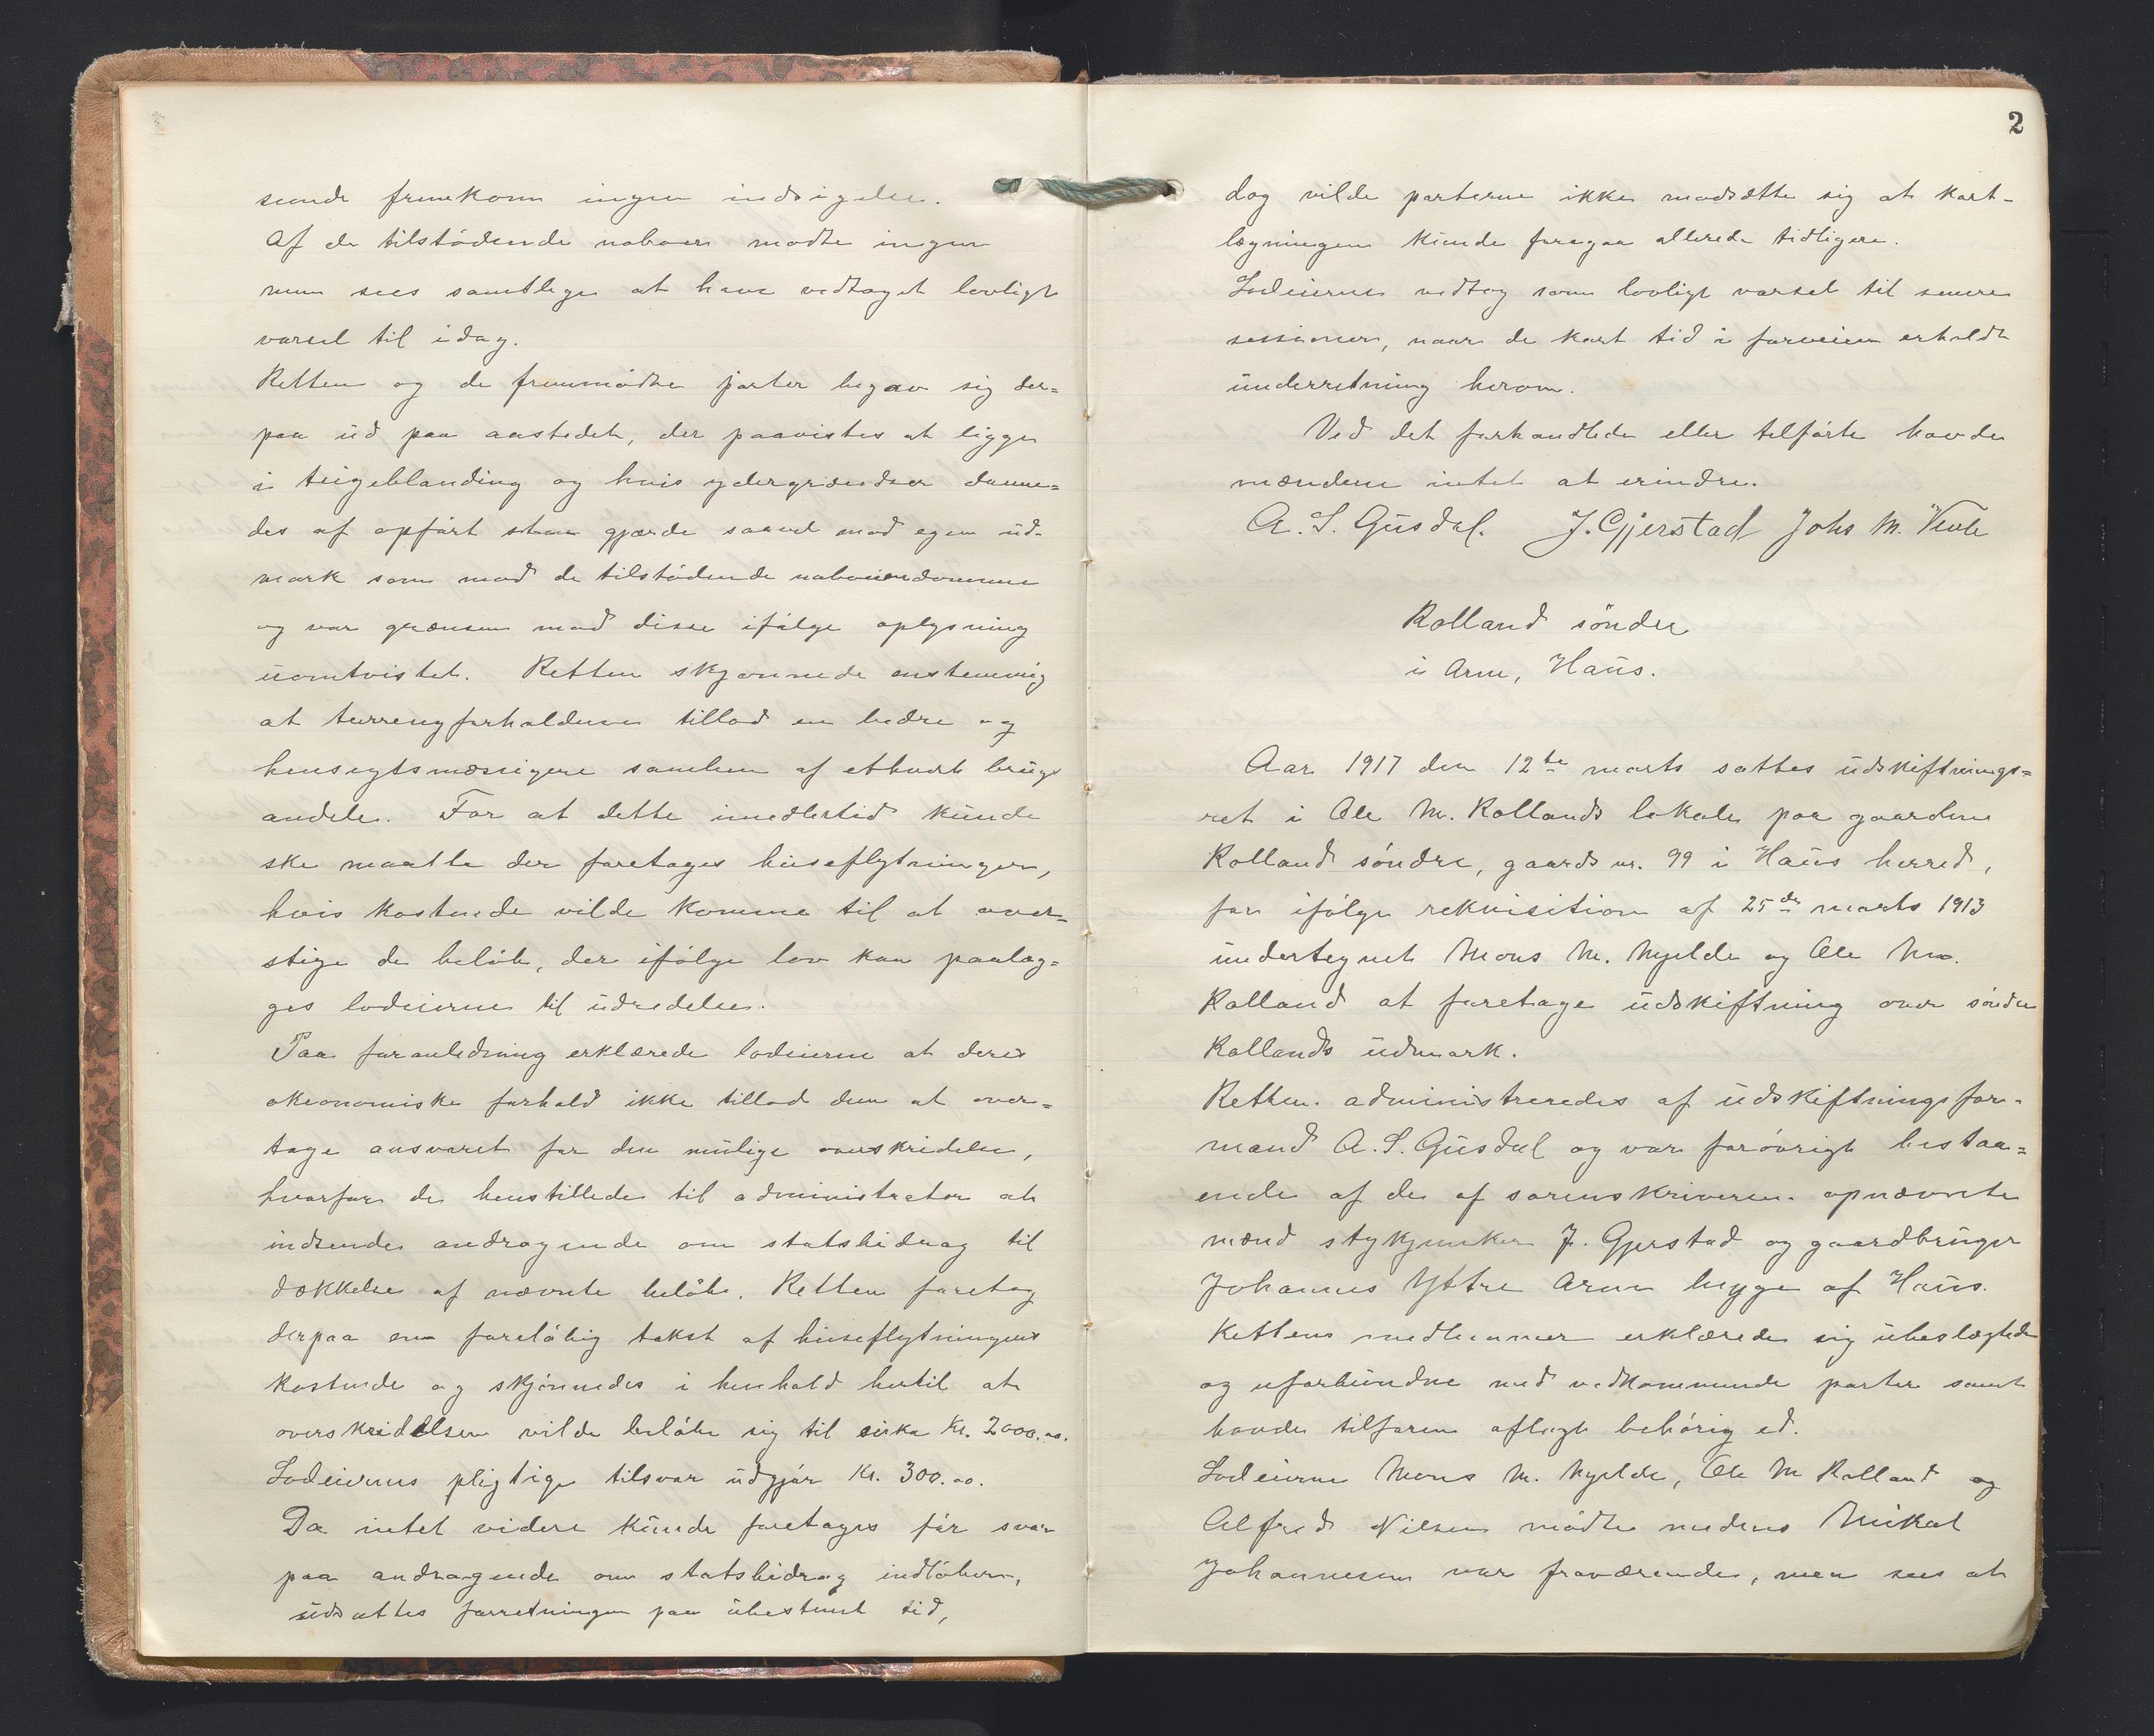 sende fremkom ingen indsigelse.
Af de tilstødende naboer mødte ingen
men sees samtlige at have vedtaget lovligt
varsel til idag.
Retten og de fremmødte parter begav sig der=
paa ud paa aastedet, der paavistes at ligge
i teigeblanding og hvis ydergrændser danne=
des af opført sten gjærde saavel mod egen ud-
mark som mod de tilstødende naboeiendomme
og var grænsen mod disse ifølge oplysning
uomtvistet. Retten skjønnede enstemmig
at terrengforholdene tillod en bedre og
hensigtsmæssigere samlem af ethvert brugs
andele. For at dette imedlertid kunde
ske maatte der foretages huseflytninger,
hvis kostende vilde komme til at over=
stige de beløb, der ifølge lov kan paalæg=
ges lodeierne til udredelse.
Paa foranledning erklærede lodeierne at deres
økonomiske forhold ikke tillod dem at over=
tage ansvaret for den mulige overskridelse,
hvorfor de henstillede til administrator at
indsende andragende om statsbidrag til
dækkelse af nævnte beløb. Retten foretog
derpaa en foreløbig takst af huseflytningens
kostende og skjønnedes i henhold hertil at
overskridelsen vilde beløbe sig til cirka Kr. 2000.00.
Lodeiernes pligtige tilsvar udgjør Kr. 300.00.
Da intet videre kunde foretages før svar
paa andragende om statsbidrag indløber,
udsattes forretningen paa ubestemt tid,
2
dog vilde parterne ikke modsætte sig at kart-
lægningen kunde foregaa allerede tidligere.
Lodeierne vedtog som lovligt varsel til senere
sessioner, naar de kort tid i forveien erholdt
underretning herom.
Ved det forhandlede eller tilførte havde
mændene intet at erindre.
A. S. Gusdal. J. Gjerstad Johs M.
Rolland søndre
i Arne, Haus.
Aar 1917 den 12te marts sattes udskiftnings=
ret i Ole M. Rollands lokale paa gaarden
Rolland søndre, gaards nr. 99 i Haus herred,
for ifølge rekvisition af 25de marts 1913
undertegnet Mons M. Mjelde og Ole M.
Rolland at foretage udskiftning over søndre
Rollands udmark.
Retten administreredes af udskiftningsfor-
mand A. S. Gusdal og var forøvrigt bestaa=
ende af de af sorenskriveren opnævnte
mænd stykjunker J. Gjerstad og gaardbruger
Johannes Yttre Arne begge af Haus.
Rettens medlemmer erklærede sig ubeslægtede
og uforbundne med vedkommende parter samt
havde tilforn aflagt behørig ed.
Lodeierne Mons M. Mjelde, Ole M Rolland og
Alfred Nilsen mødte medens Mikal
Johannesen var fraværende, men sees at